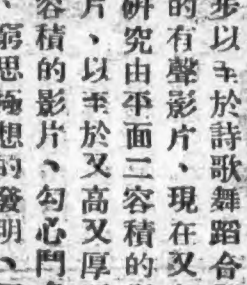 步以至於詩歌舞蹈合
的有聲影片、現在又
研究由平面二容積的
片、以至於又高又厚
容積的影片、勾心鬥
窮思極想的發明、